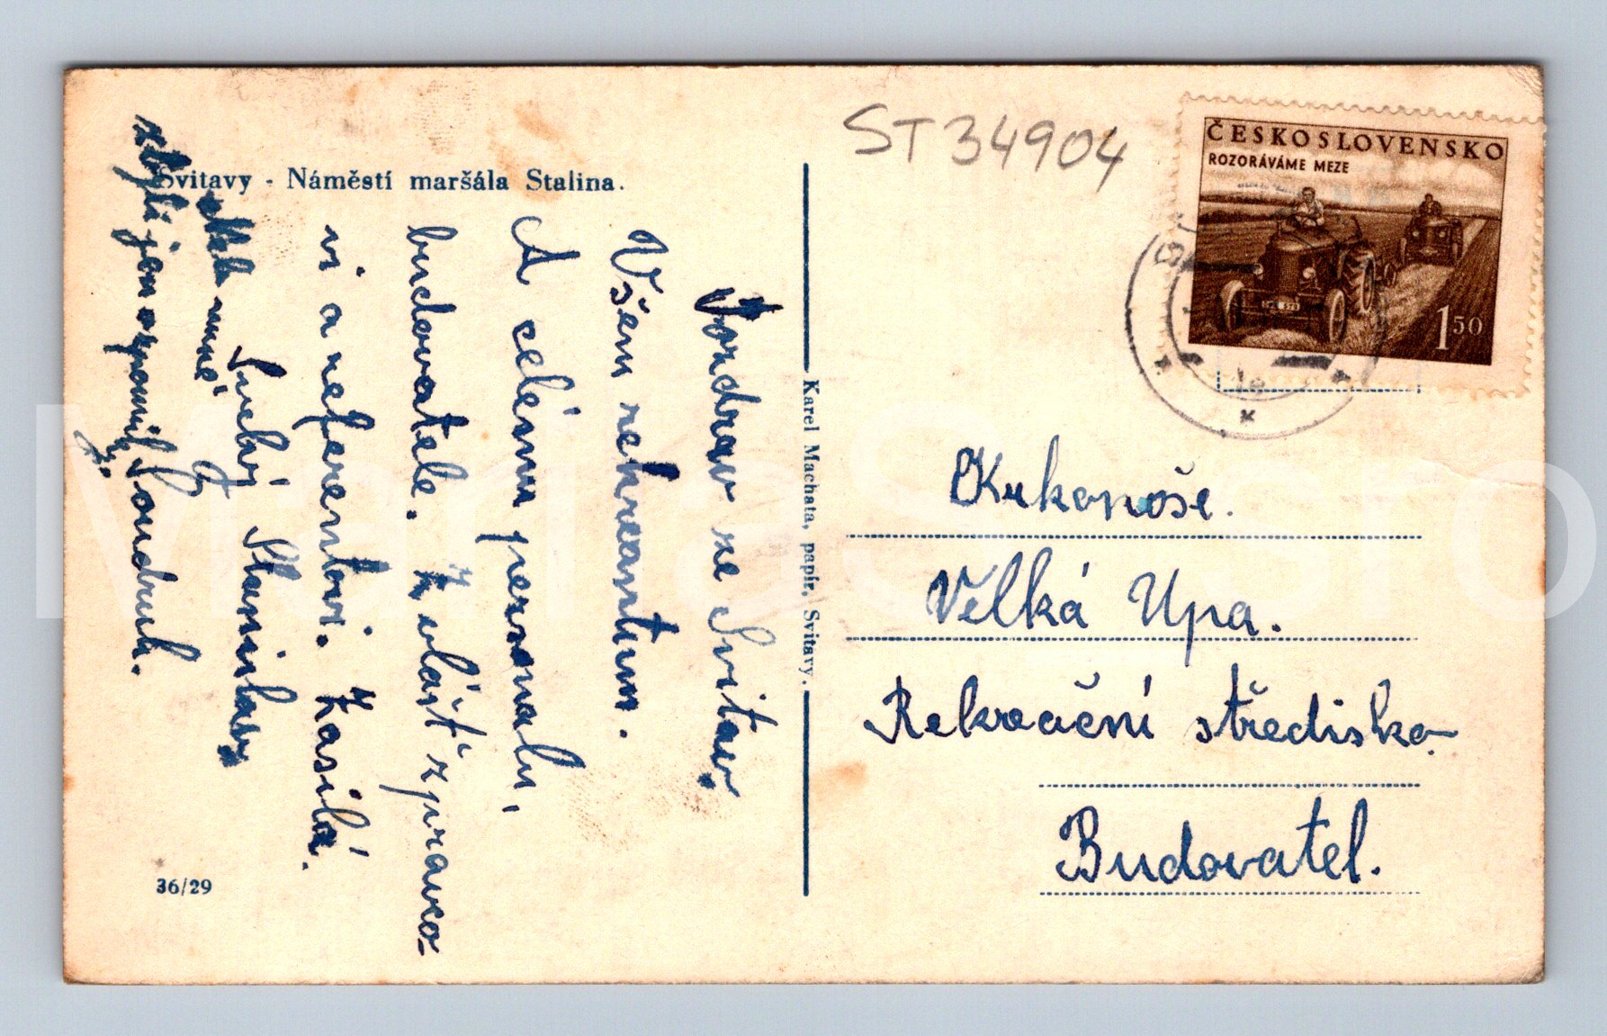 ST 34904
ČESKOSLOVENSKO
ROZORÁVÁME MEZE
150
Svitavy - Náměstí maršála Stalina.
Pozdrav ze Svitav.
Všem rekreantum.
A celému personalu,
budovatele. Zvlášť zpravco-
vi a referentovi. Zasílá.
Stanislav
zbyli jen vzpomínky. Soudruh.
Karel Machata, papír, Svitavy.
Krkonoše.
Velká Upa.
Rekreační středisko
Budovatel.
36/29